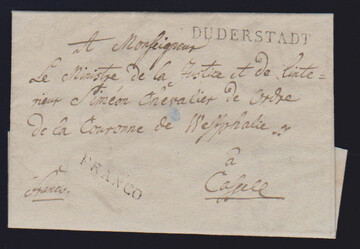 DUDERSTADT
A Monseigneur
Le Ministre de la Justice et de l'inte-
rieur Siméon Chevalier de Ordre
de la Couronne de Westphalie
à
Cassel
FRANCO
franco